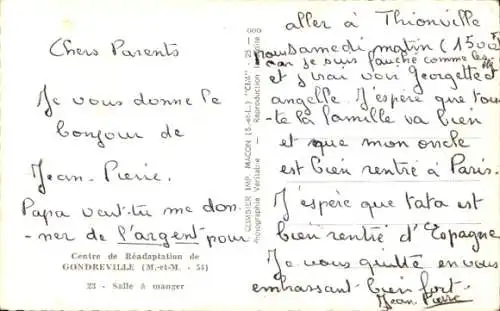 Chers Parents
Je vous donne le
bonjour de
Jean-Pierre.
Papa veut-tu me don
-ner de l'argent pour
Centre de Réadaptation de
GONDREVILLE (M.-et-M. - 54)
23 - Salle à manger
COMBIER IMP. MACON (S.-et-L.) "CIM"
Photographie Véritable - Reproduction
aller à Thionville
pour samedi matin (1500
car je suis fauché comme les
et j'irai voir Georgette d'
angelle. J'espère que tou
-te la famille va bien
et que mon oncle
est bien rentré à Paris.
J'espère que tata est
bien rentré d'Espagne
Je vous quitte en vous
embrassant bien fort.
Jean Pierre